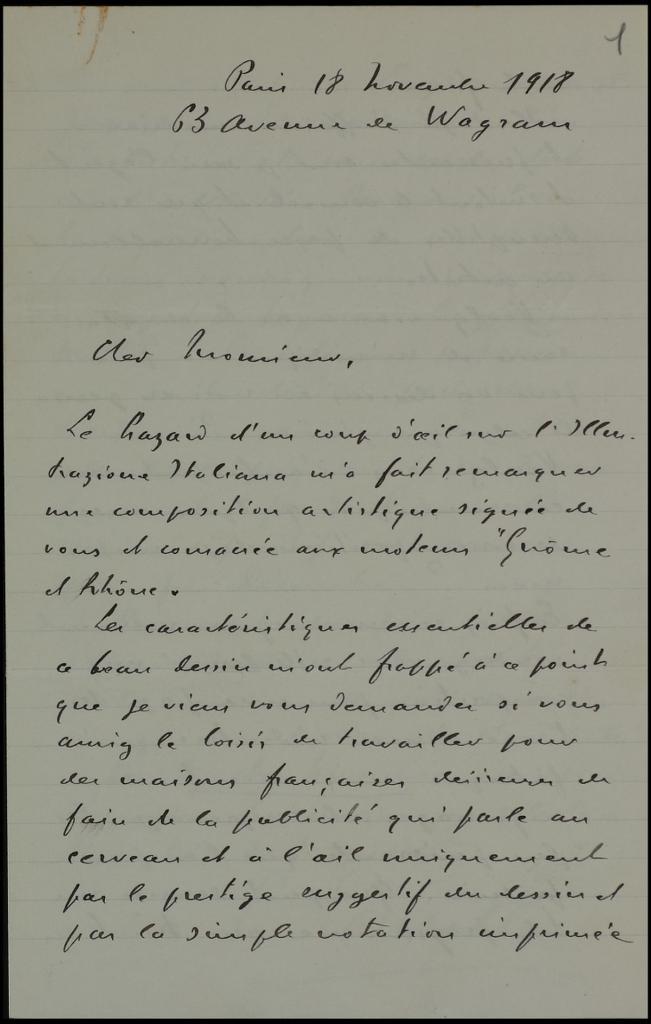 1
Paris 18 Novembre 1918
63 Avenue de Wagram
Cher Monsieur,
Le hazard d'un coup d'œil sur l'Illus-
trazione Italiana m'a fait remarquer
une composition artistique signée de
vous et consacrée aux moteurs "Gnôme
et Rhône.
Les caractéristiques essentielles de
ce beau dessin m'ont frappé à ce point
que je viens vous demander si vous
auriez le loisir de travailler pour
des maisons françaises désireuses de
faire de la publicité qui parle au
cerveau et à l'œil uniquement
par le prestige suggestif du dessin et
par la simple notation imprimée